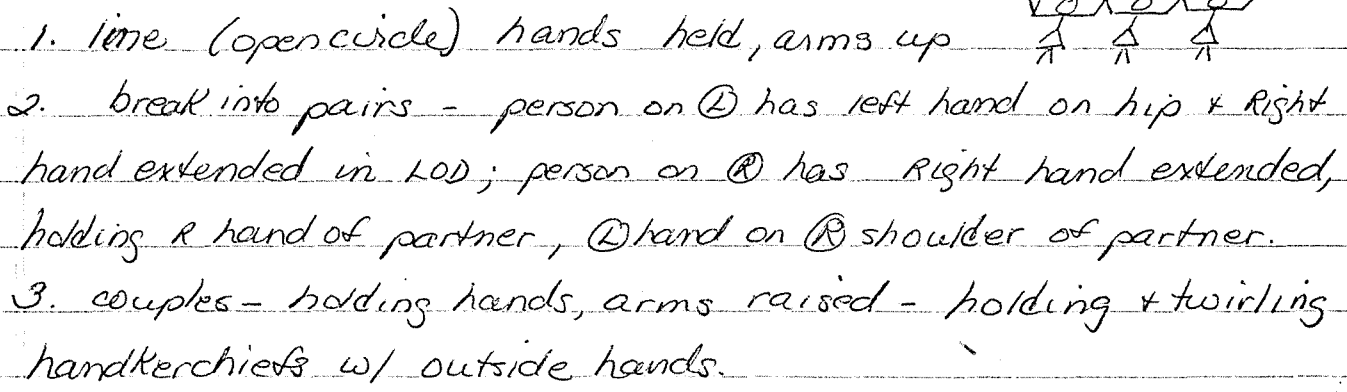 1. line (open circle) hands held, arms up
2. break into pairs - person on Ⓛ has left hand on hip & Right
hand extended in LOD; person on Ⓡ has Right hand extended,
holding R hand of partner, Ⓛ hand on Ⓡ shoulder of partner.
3. couples - holding hands, arms raised - holding & twirling
handkerchiefs w/ outside hands.